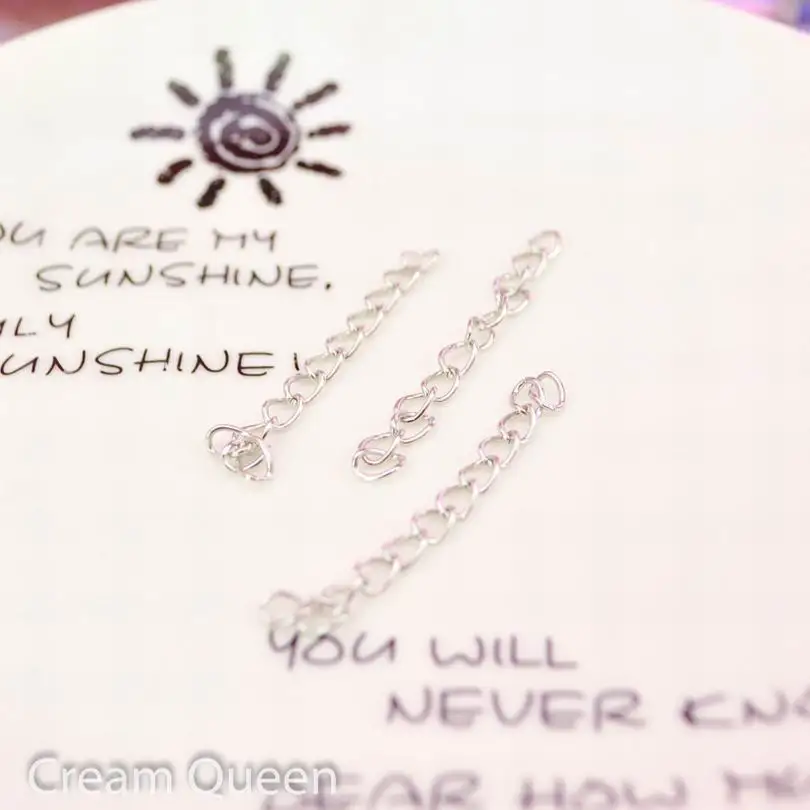 OU ARE MY
SUNSHINE.
NLY
UNSHINE!
YOU WILL
NEVER KNO
DEAR HOW
Cream Queen